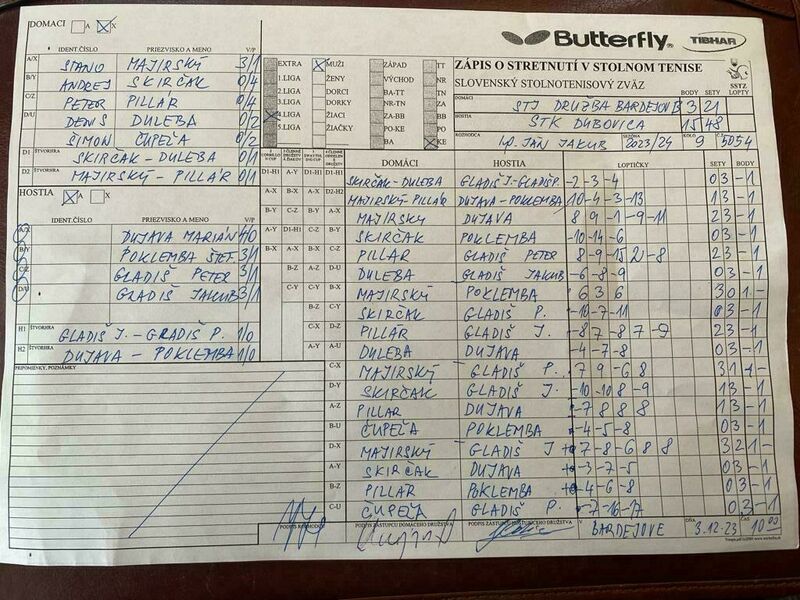 DOMACI A X
Butterfly TIBHAR
IDENT.ČÍSLO PRIEZVISKO A MENO V/P
A/X STANO MAJIRSKÝ 3/1
B/Y ANDREJ SKIRČAK 0/4
C/Z PETER PILLÁR 0/4
D/U DENIS DULEBA 0/2
ŠIMON ČUPEĽA 0/2
D1 ŠTVORHRA SKIRČAK - DULEBA 0/1
D2 ŠTVORHRA MAJIRSKÝ - PILLÁR 0/1
HOSTIA A X
IDENT.ČÍSLO PRIEZVISKO A MENO V/P
A/X DUJAVA MARIÁN 4/0
B/Y POKLEMBA ŠTEF. 3/1
C/Z GLADIŠ PETER 3/1
D/U GLADIŠ JAKUB 3/1
H1 ŠTVORHRA GLADIŠ J. - GRADIŠ P. 1/0
H2 ŠTVORHRA DUJAVA - POKLEMBA 1/0
PRIPOMIENKY, POZNÁMKY
EXTRA MUŽI ZÁPAD TT
1.LIGA ŽENY VÝCHOD NR
2.LIGA DORCI BA-TT TN
3.LIGA DORKY NR-TN ZA
4.LIGA ŽIACI ZA-BB BB
5.LIGA ŽIAČKY PO-KE PO
BA KE
ZÁPIS O STRETNUTÍ V STOLNOM TENISE
SLOVENSKÝ STOLNOTENISOVÝ ZVÄZ
SSTZ
BODY SETY LOPTY
DOMÁCI STJ DRUŽBA BARDEJOV 3 21
HOSTIA STK DUBOVICA 15 48
JÁN JAKUB 2023/24 KOLO 9 5054
DOMÁCI HOSTIA LOPTIČKY SETY BODY
D1-H1 SKIRČAK-DULEBA GLADIŠ J.-GLADIŠ P. -2 -3 -4 0 3 - 1
D2-H2 MAJIRSKÝ-PILLÁR DUJAVA-POKLEMBA 10 -4 -3 -13 1 3 - 1
A-X MAJIRSKÝ DUJAVA 8 9 -1 -9 -11 2 3 - 1
B-Y SKIRČAK POKLEMBA -10 -14 -6 0 3 - 1
C-Z PILLÁR GLADIŠ PETER 8 -9 -15 2 -8 2 3 - 1
D-U DULEBA GLADIŠ JAKUB -6 -8 -9 0 3 - 1
B-X MAJIRSKÝ POKLEMBA 6 3 6 3 0 1 -
SKIRČAK GLADIŠ P. -10 -7 -11 0 3 - 1
PILLÁR GLADIŠ J. -8 7 -8 7 -9 2 3 - 1
A-U DULEBA DUJAVA -4 -7 -8 0 3 - 1
C-X MAJIRSKÝ GLADIŠ P. -7 9 -6 8 3 1 1 -
D-Y SKIRČAK GLADIŠ J. -10 -10 8 -9 1 3 - 1
A-Z PILLÁR DUJAVA -7 8 8 8 1 3 - 1
B-U ČUPEĽA POKLEMBA -4 -5 -8 0 3 - 1
D-X MAJIRSKÝ GLADIŠ J 7 -8 -6 8 8 3 2 1 -
A-Y SKIRČAK DUJAVA -3 -7 -5 0 3 - 1
B-Z PILLÁR POKLEMBA -4 -6 -8 0 3 - 1
C-U ČUPEĽA GLADIŠ P. -7 -16 -17 0 3 - 1
PODPIS ROZHODCU PODPIS ZÁSTUPCU DOMÁCEHO DRUŽSTVA PODPIS ZÁSTUPCU HOSŤUJÚCEHO DRUŽSTVA V BARDEJOVE DŇA 3.12.23 ČAS 10 00